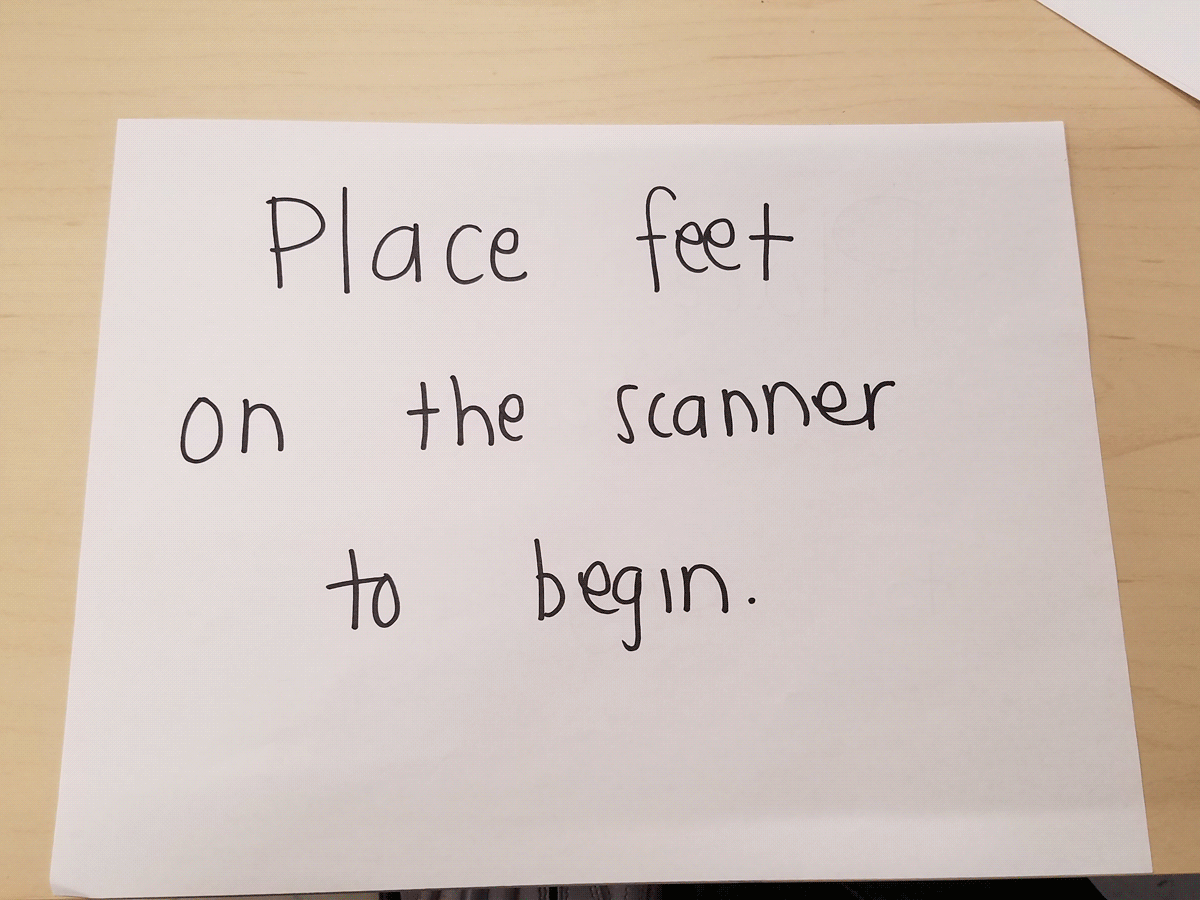 Place feet
on the scanner
to begin.